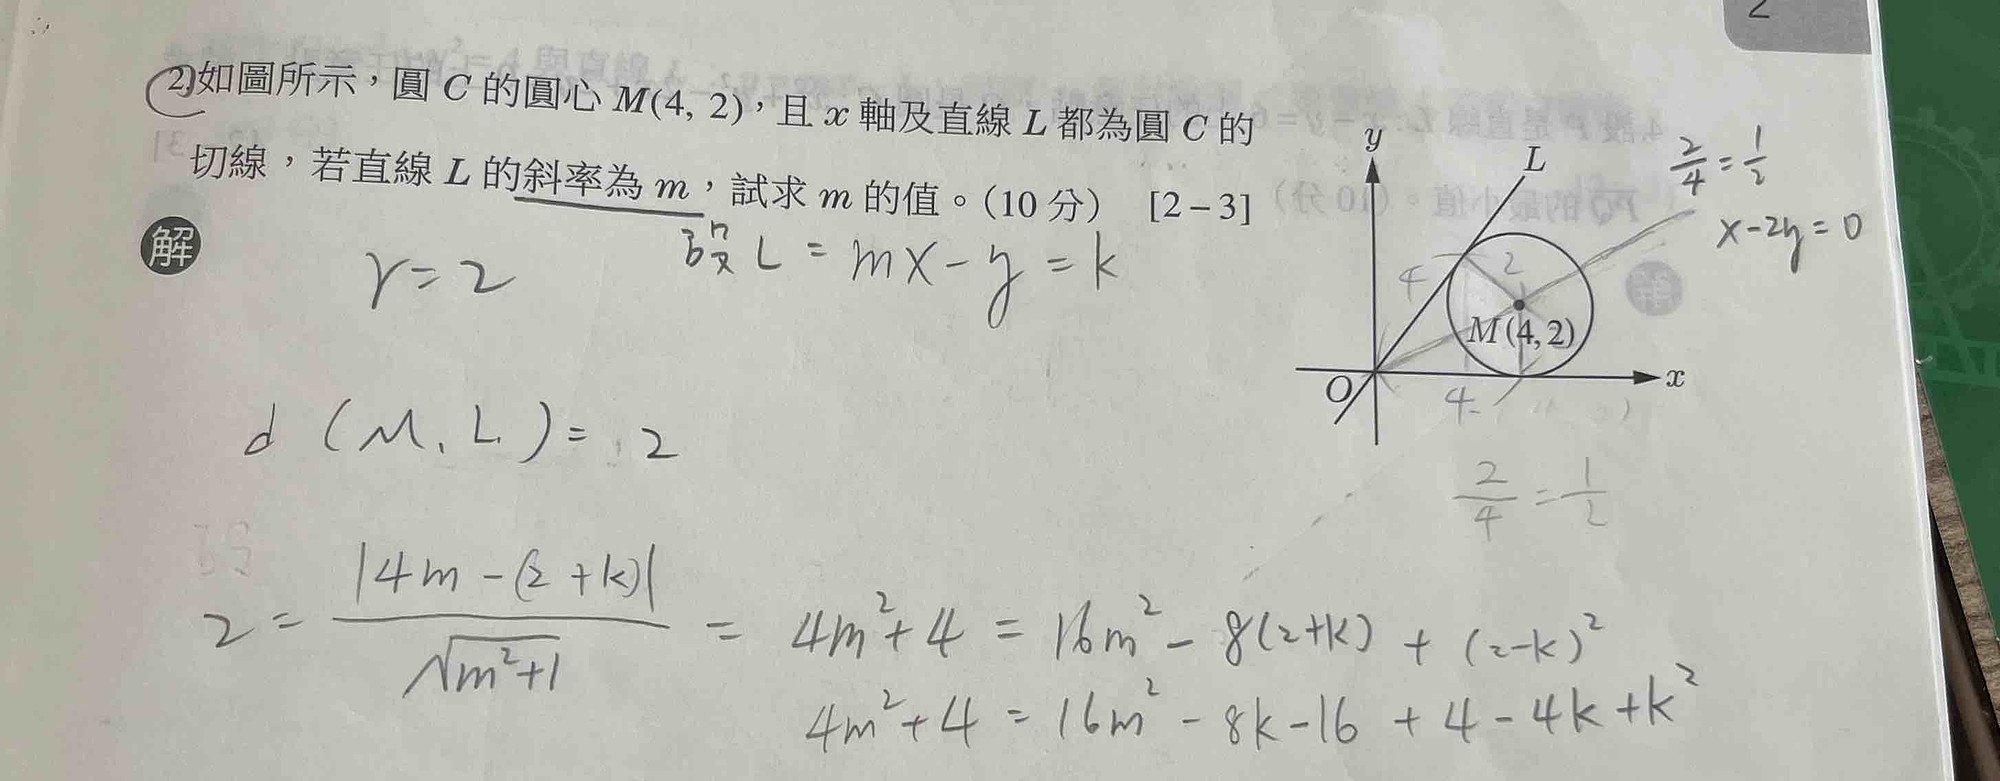 2
2.如圖所示，圓 C 的圓心 M(4, 2)，且 x 軸及直線 L 都為圓 C 的
切線，若直線 L 的斜率為 m，試求 m 的值。（10 分） [2－3]
解
r = 2
設 L = mx - y = k
d (M, L) = 2
2 = |4m - (2 + k)| / √(m²+1) = 4m² + 4 = 16m² - 8(2+k) + (2-k)²
4m² + 4 = 16m² - 8k - 16 + 4 - 4k + k²
y
L
2/4 = 1/2
x - 2y = 0
4
2
M(4, 2)
O
x
4
2/4 = 1/2